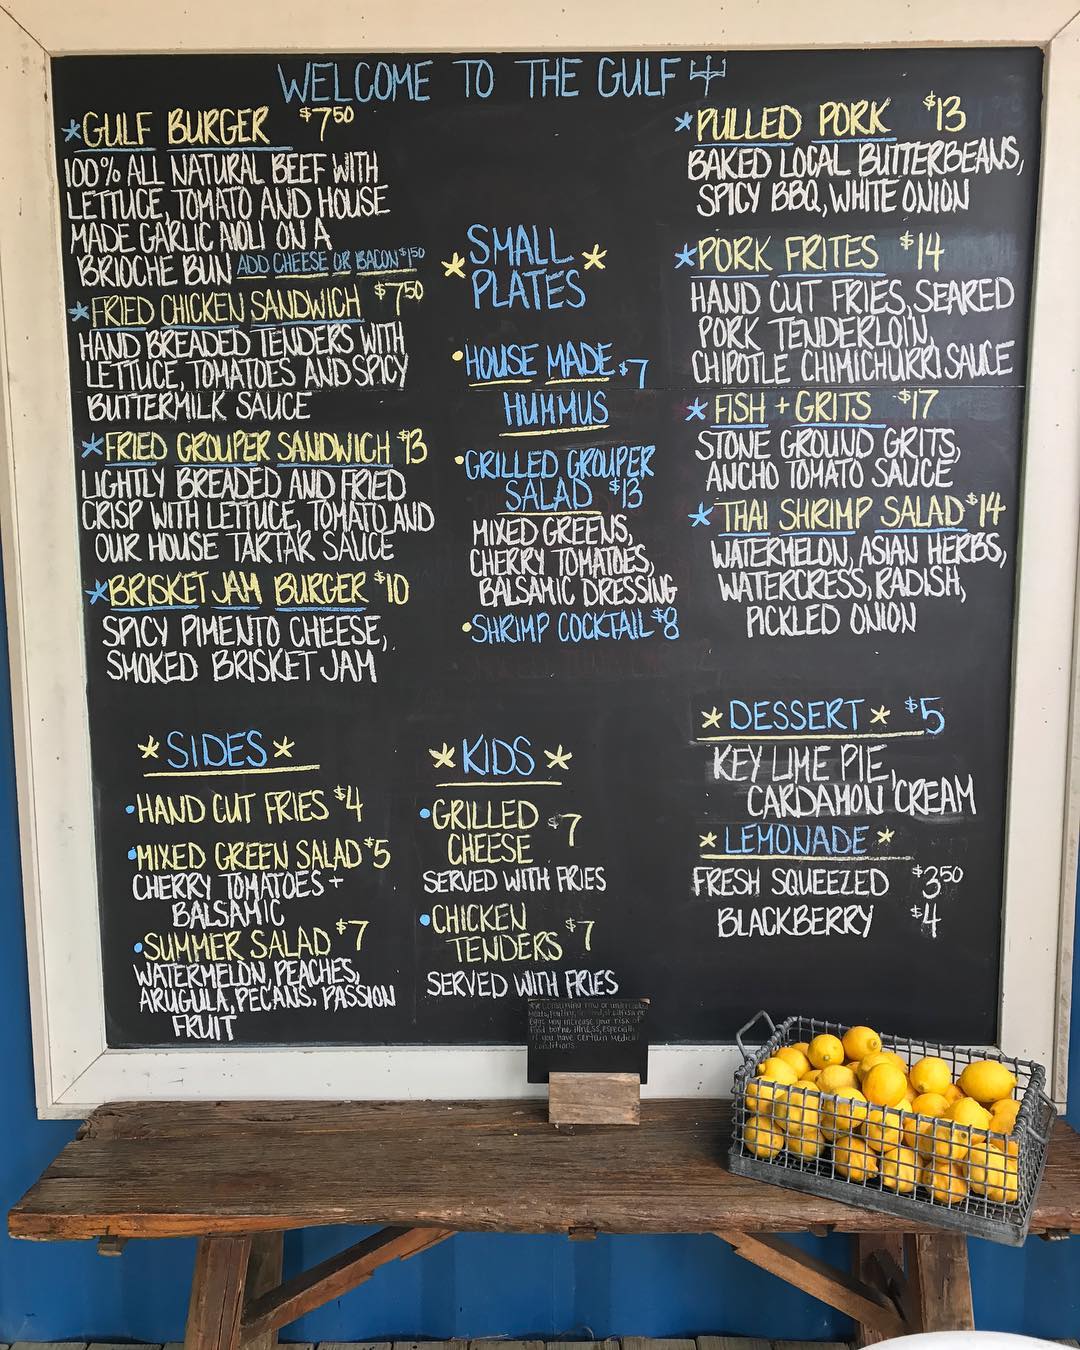 WELCOME TO THE GULF
*GULF BURGER $7.50
100% ALL NATURAL BEEF WITH
LETTUCE, TOMATO AND HOUSE
MADE GARLIC AIOLI ON A
BRIOCHE BUN ADD CHEESE OR BACON $1.50
*FRIED CHICKEN SANDWICH $7.50
HAND BREADED TENDERS WITH
LETTUCE, TOMATOES AND SPICY
BUTTERMILK SAUCE
*FRIED GROUPER SANDWICH $13
LIGHTLY BREADED AND FRIED
CRISP WITH LETTUCE, TOMATO AND
OUR HOUSE TARTAR SAUCE
*BRISKET JAM BURGER $10
SPICY PIMENTO CHEESE,
SMOKED BRISKET JAM
*SMALL
PLATES*
•HOUSE MADE $7
HUMMUS
•GRILLED GROUPER
SALAD $13
MIXED GREENS,
CHERRY TOMATOES,
BALSAMIC DRESSING
•SHRIMP COCKTAIL $8
*PULLED PORK $13
BAKED LOCAL BUTTERBEANS,
SPICY BBQ, WHITE ONION
*PORK FRITES $14
HAND CUT FRIES, SEARED
PORK TENDERLOIN,
CHIPOTLE CHIMICHURRI SAUCE
*FISH + GRITS $17
STONE GROUND GRITS,
ANCHO TOMATO SAUCE
*THAI SHRIMP SALAD $14
WATERMELON, ASIAN HERBS,
WATERCRESS, RADISH,
PICKLED ONION
*SIDES*
•HAND CUT FRIES $4
•MIXED GREEN SALAD $5
CHERRY TOMATOES +
BALSAMIC
•SUMMER SALAD $7
WATERMELON, PEACHES,
ARUGULA, PECANS, PASSION
FRUIT
*KIDS*
•GRILLED
CHEESE $7
SERVED WITH FRIES
•CHICKEN
TENDERS $7
SERVED WITH FRIES
*DESSERT* $5
KEY LIME PIE,
CARDAMON CREAM
*LEMONADE*
FRESH SQUEEZED $3.50
BLACKBERRY $4
consuming raw or undercooked
meats, poultry, shellfish or
eggs may increase your risk of
food borne illness, especially
if you have certain medical
conditions